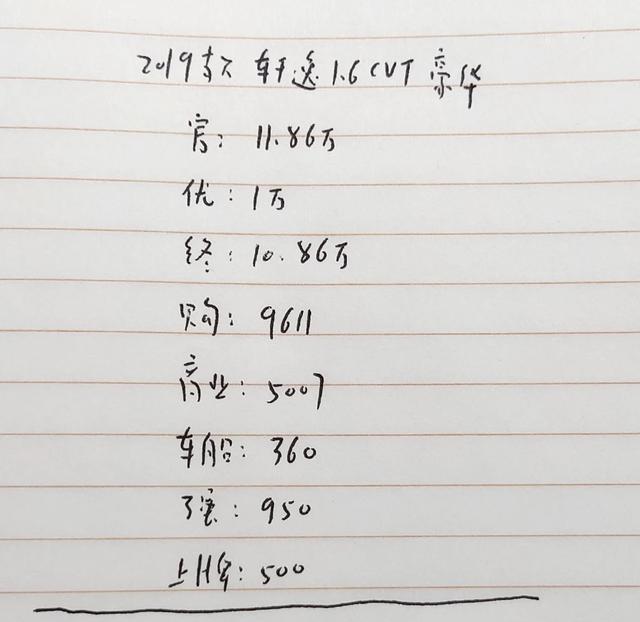 2019款 轩逸 1.6 CVT 豪华
官: 11.86万
优: 1万
终: 10.86万
购: 9611
商业: 5007
车船: 360
强: 950
上牌: 500